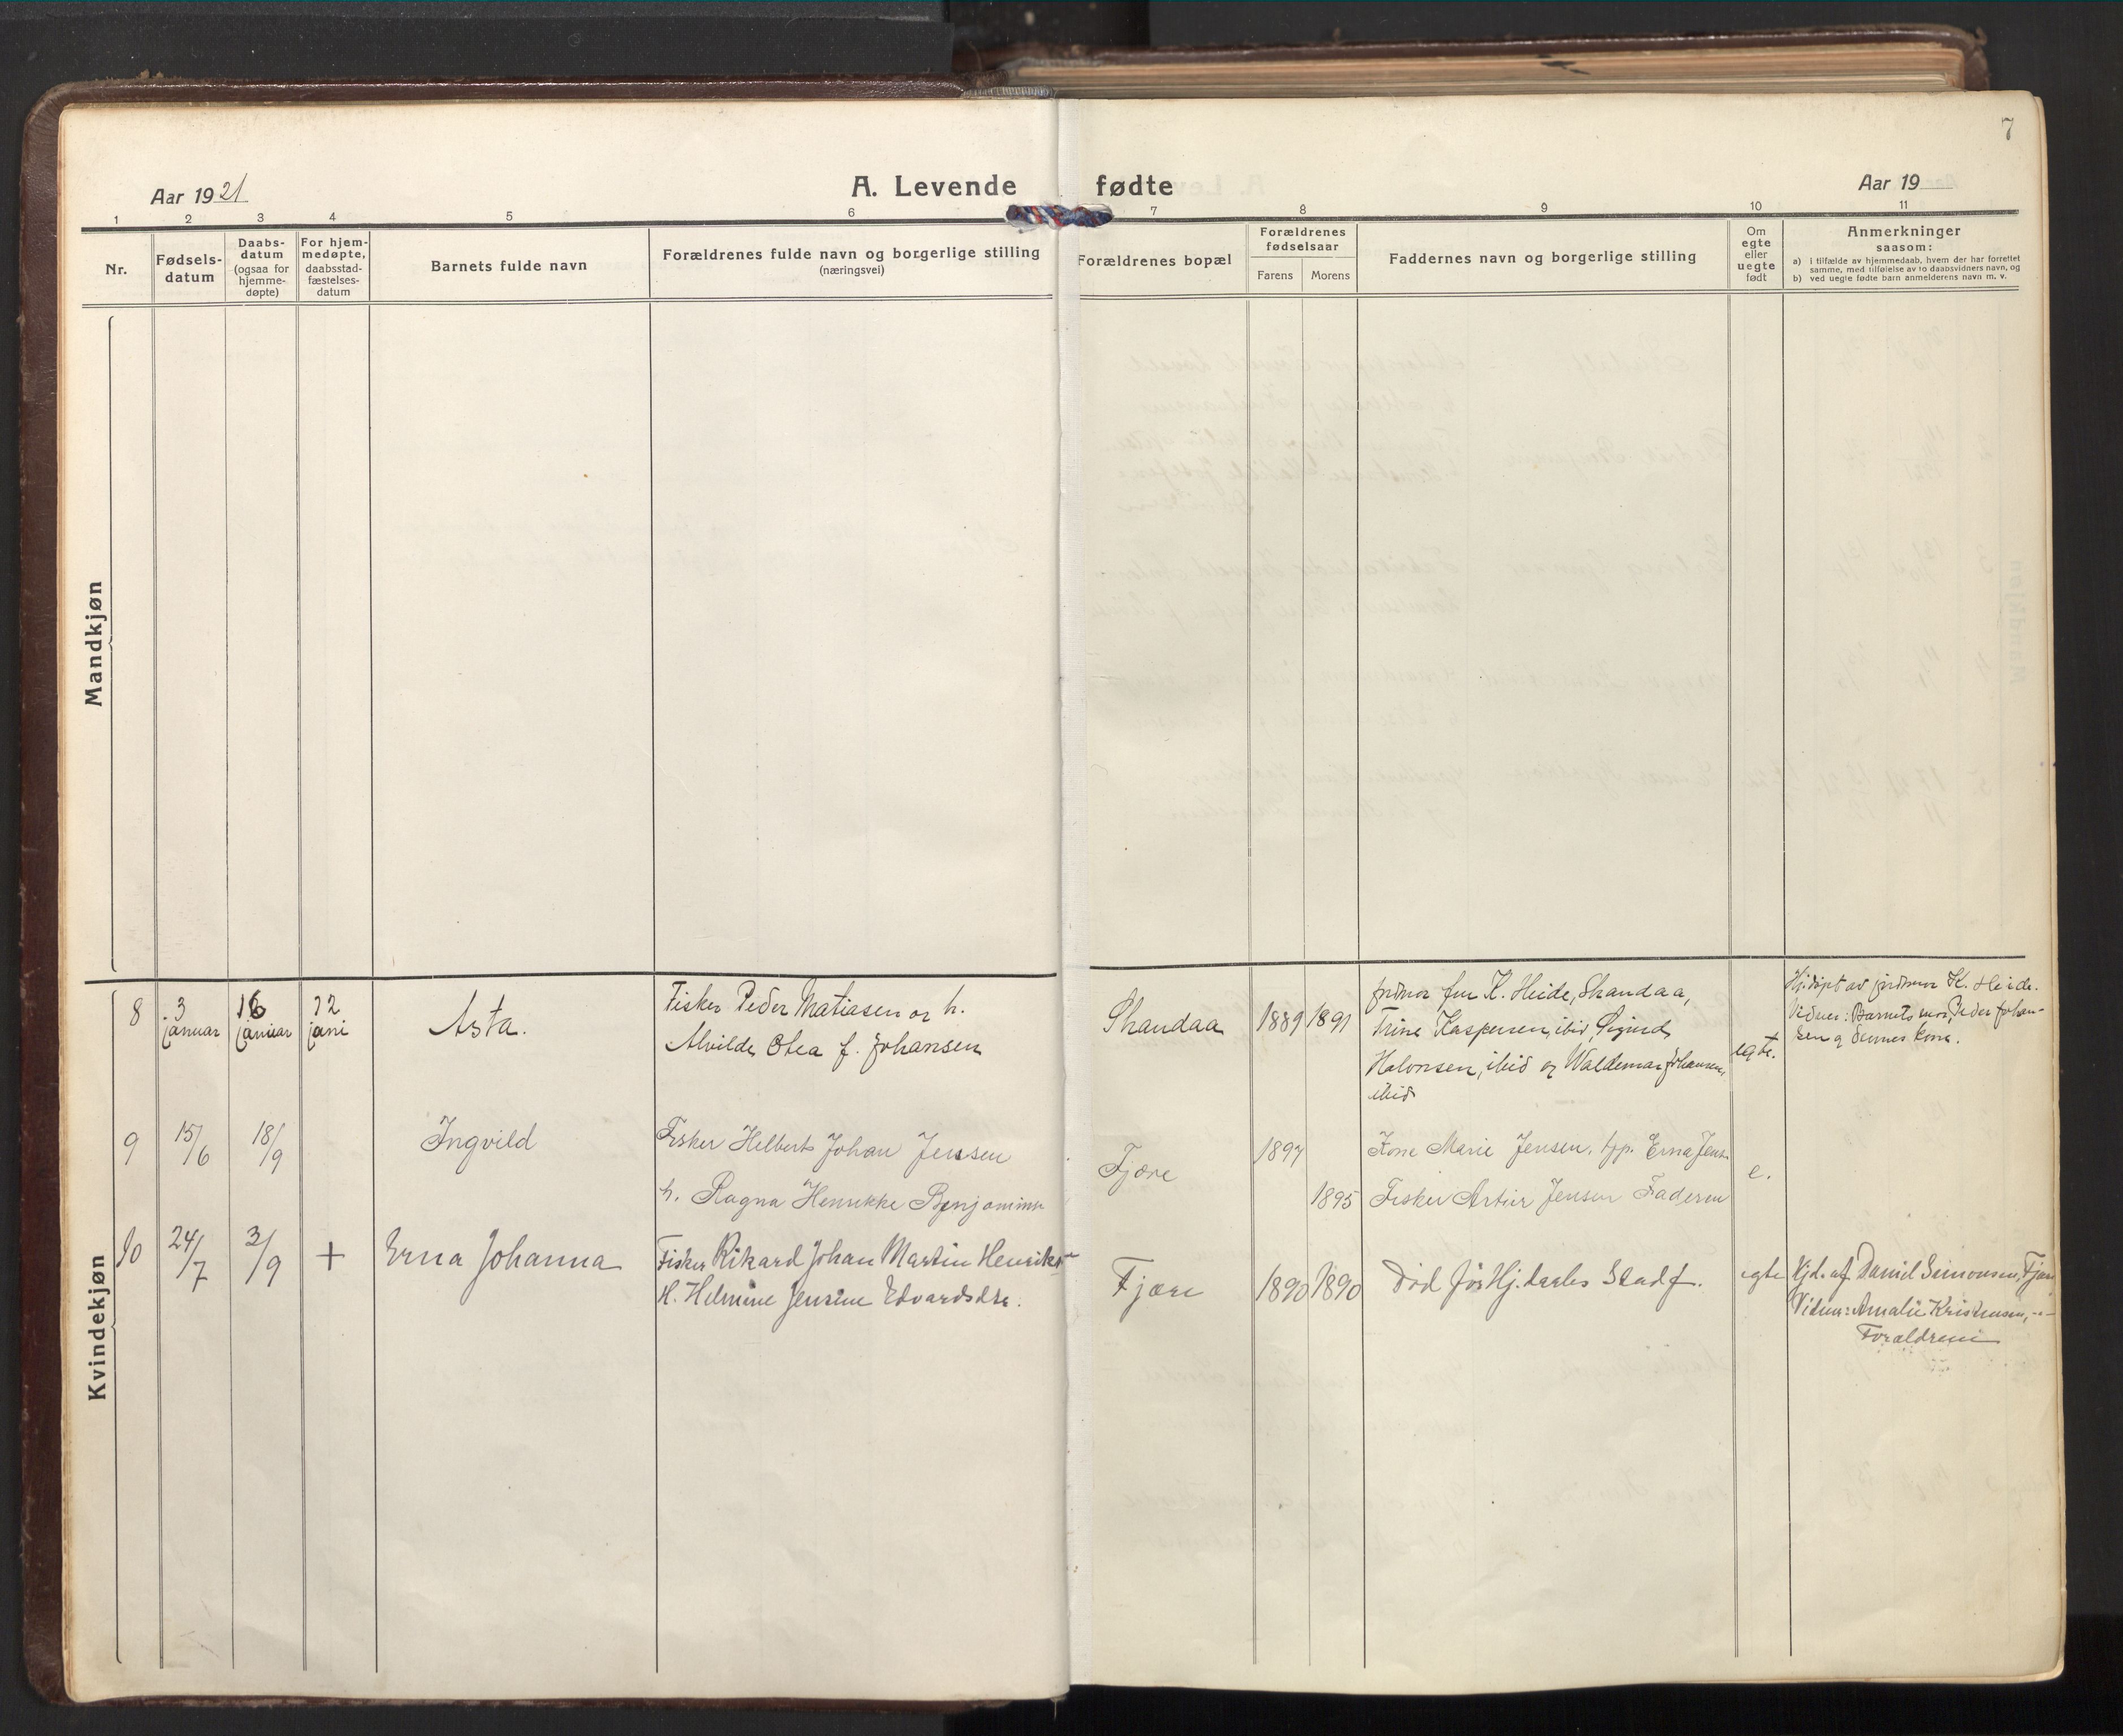 7
Aar 1921
A. Levende fødte
Aar 19
1 2 3 4 5 6 7 8 9 10 11
Nr.
Fødsels-
datum
Daabs-
datum
(ogsaa for
hjemme-
døpte)
For hjem-
medøpte,
daabsstad-
fæstelses-
datum
Barnets fulde navn
Forældrenes fulde navn og borgerlige stilling
(næringsvei)
Forældrenes bopæl
Forældrenes
fødselsaar
Farens Morens
Faddernes navn og borgerlige stilling
Om
egte
eller
uegte
født
Anmerkninger
saasom:
a) i tilfælde av hjemmedaab, hvem der har forrettet
samme, med tilføielse av to daabsvidners navn, og
b) ved uegte fødte barn anmelderens navn m. v.
Mandkjøn
Kvindekjøn
8
3
januar
16
januar
12
juni
Asta.
Fisker Peder Matiasen og h.
Alvilde Otea f. Johansen
Skandaa
1889 1891
K. Heide, Skandaa,
Trine Kaspersen, ibid,
Halvorsen, ibid og Waldemar Johansen,
ibid
egte.
K. Heide.
Vidner: Barnets mor, Peder Johan-
sen og dennes kone.
9
15/6
18/9
Ingvild
Fisker Helbert Johan Jensen
h. Ragna Henrikke
Fjære
1897
1895
Kone Marie Jensen, Erna Jens.
Fisker Artur Jensen Faderen
e.
10
24/7
3/9
+
Erna Johanna
Fisker Rikard Johan Martin Henriks
H. Helmine Jensine Edvardsdtr.
Fjære
1890 1890
Død før Hj.daabs Stadf.
egte
Hjd. af Daniel Simonsen, Fjære
Vidner: Amalie Kristensen, -"-
Forældrene